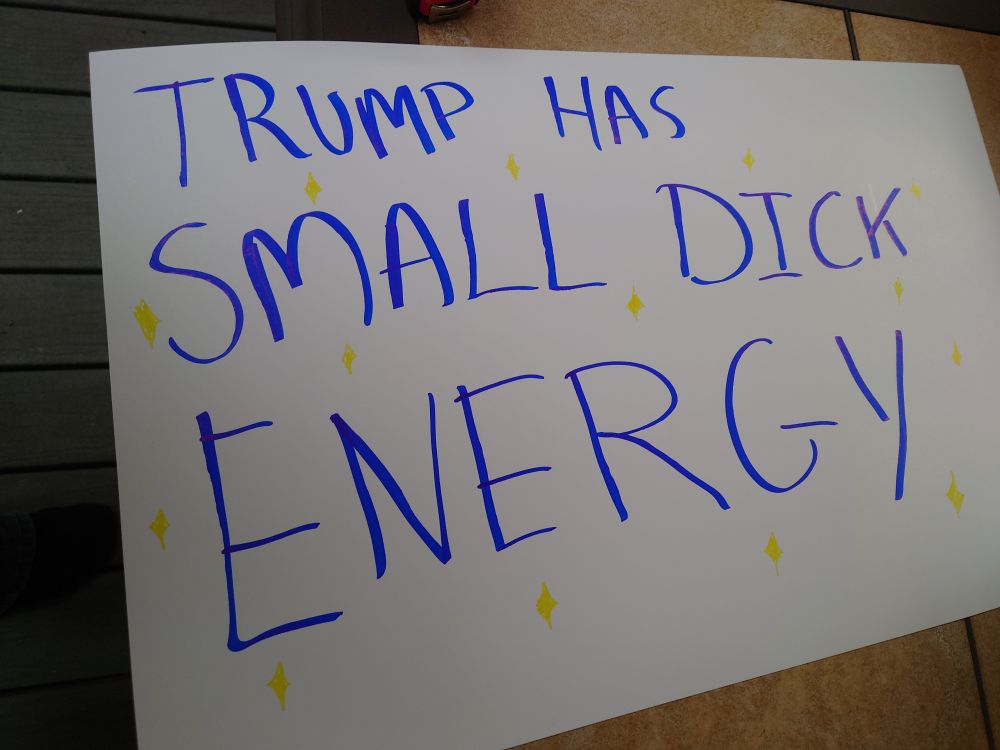 TRUMP HAS
SMALL DICK
ENERGY